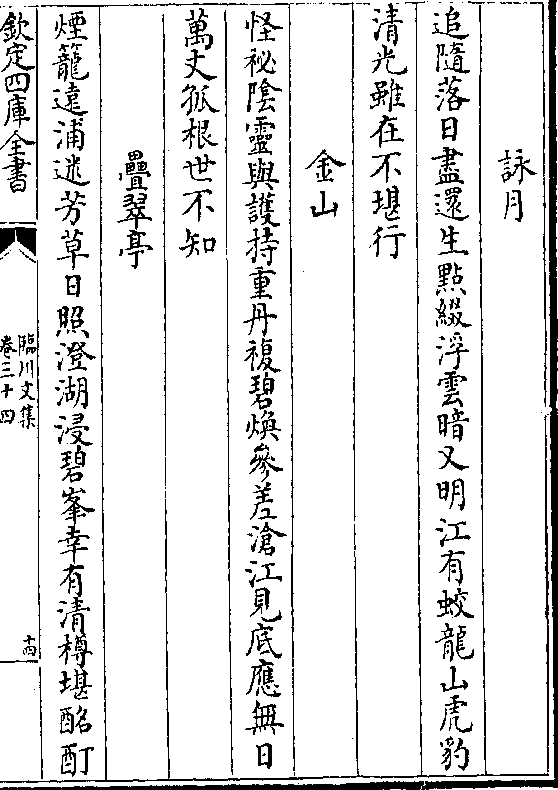 詠月
追隨落日盡還生點綴浮雲暗又明江有蛟龍山虎豹
清光雖在不堪行
金山
怪祕陰靈與護持重丹複碧煥參差滄江見底應無日
萬丈孤根世不知
疊翠亭
煙籠遠浦迷芳草日照澄湖浸碧峯幸有清樽堪酩酊
欽定四庫全書
臨川文集
卷三十四
十四